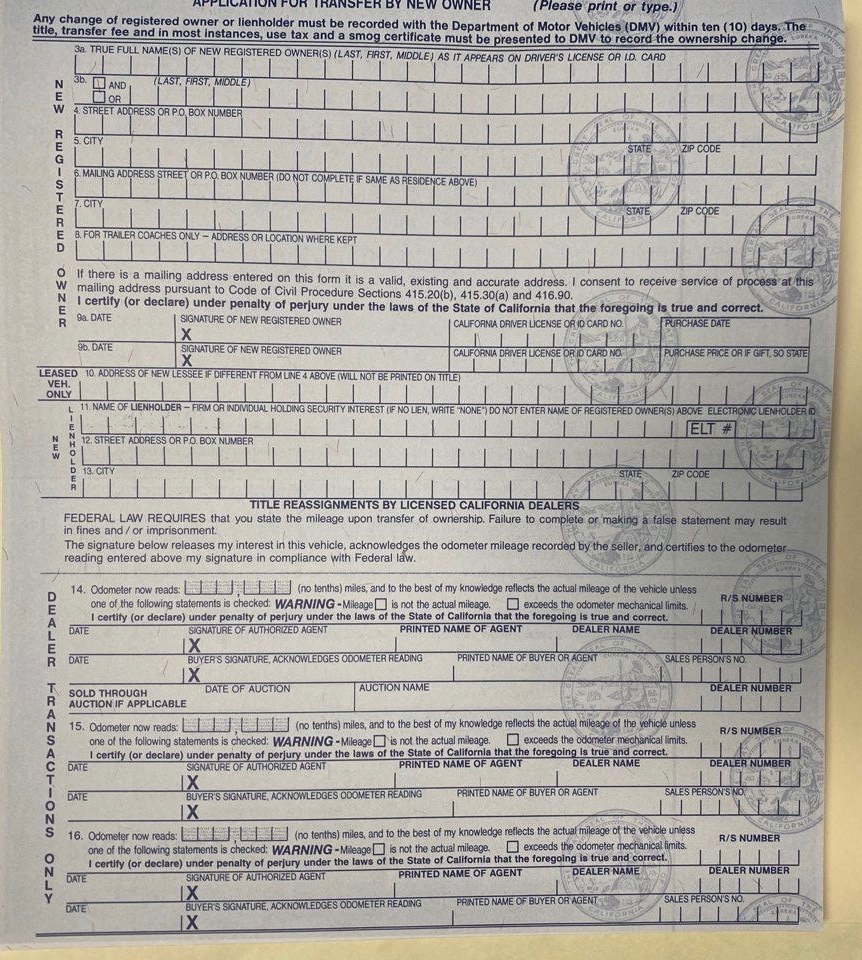 APPLICATION FOR TRANSFER BY NEW OWNER (Please print or type.)
Any change of registered owner or lienholder must be recorded with the Department of Motor Vehicles (DMV) within ten (10) days. The
title, transfer fee and in most instances, use tax and a smog certificate must be presented to DMV to record the ownership change.
NEW REGISTERED OWNER
3a. TRUE FULL NAME(S) OF NEW REGISTERED OWNER(S) (LAST, FIRST, MIDDLE) AS IT APPEARS ON DRIVER'S LICENSE OR I.D. CARD
3b. AND (LAST, FIRST, MIDDLE)
OR
4. STREET ADDRESS OR P.O. BOX NUMBER
5. CITY STATE ZIP CODE
6. MAILING ADDRESS STREET OR P.O. BOX NUMBER (DO NOT COMPLETE IF SAME AS RESIDENCE ABOVE)
7. CITY STATE ZIP CODE
8. FOR TRAILER COACHES ONLY – ADDRESS OR LOCATION WHERE KEPT
If there is a mailing address entered on this form it is a valid, existing and accurate address. I consent to receive service of process at this
mailing address pursuant to Code of Civil Procedure Sections 415.20(b), 415.30(a) and 416.90.
I certify (or declare) under penalty of perjury under the laws of the State of California that the foregoing is true and correct.
9a. DATE SIGNATURE OF NEW REGISTERED OWNER CALIFORNIA DRIVER LICENSE OR ID CARD NO. PURCHASE DATE
X
9b. DATE SIGNATURE OF NEW REGISTERED OWNER CALIFORNIA DRIVER LICENSE OR ID CARD NO. PURCHASE PRICE OR IF GIFT, SO STATE
X
LEASED VEH. ONLY
10. ADDRESS OF NEW LESSEE IF DIFFERENT FROM LINE 4 ABOVE (WILL NOT BE PRINTED ON TITLE)
NEW LIENHOLDER
11. NAME OF LIENHOLDER – FIRM OR INDIVIDUAL HOLDING SECURITY INTEREST (IF NO LIEN, WRITE "NONE") DO NOT ENTER NAME OF REGISTERED OWNER(S) ABOVE ELECTRONIC LIENHOLDER ID
ELT #
12. STREET ADDRESS OR P.O. BOX NUMBER
13. CITY STATE ZIP CODE
TITLE REASSIGNMENTS BY LICENSED CALIFORNIA DEALERS
FEDERAL LAW REQUIRES that you state the mileage upon transfer of ownership. Failure to complete or making a false statement may result
in fines and / or imprisonment.
The signature below releases my interest in this vehicle, acknowledges the odometer mileage recorded by the seller, and certifies to the odometer
reading entered above my signature in compliance with Federal law.
DEALER TRANSACTIONS ONLY
14. Odometer now reads: , (no tenths) miles, and to the best of my knowledge reflects the actual mileage of the vehicle unless
one of the following statements is checked: WARNING - Mileage is not the actual mileage. exceeds the odometer mechanical limits. R/S NUMBER
I certify (or declare) under penalty of perjury under the laws of the State of California that the foregoing is true and correct.
DATE SIGNATURE OF AUTHORIZED AGENT PRINTED NAME OF AGENT DEALER NAME DEALER NUMBER
X
DATE BUYER'S SIGNATURE, ACKNOWLEDGES ODOMETER READING PRINTED NAME OF BUYER OR AGENT SALES PERSON'S NO.
X
SOLD THROUGH DATE OF AUCTION AUCTION NAME DEALER NUMBER
AUCTION IF APPLICABLE
15. Odometer now reads: , (no tenths) miles, and to the best of my knowledge reflects the actual mileage of the vehicle unless
one of the following statements is checked: WARNING - Mileage is not the actual mileage. exceeds the odometer mechanical limits. R/S NUMBER
I certify (or declare) under penalty of perjury under the laws of the State of California that the foregoing is true and correct.
DATE SIGNATURE OF AUTHORIZED AGENT PRINTED NAME OF AGENT DEALER NAME DEALER NUMBER
X
DATE BUYER'S SIGNATURE, ACKNOWLEDGES ODOMETER READING PRINTED NAME OF BUYER OR AGENT SALES PERSON'S NO.
X
16. Odometer now reads: , (no tenths) miles, and to the best of my knowledge reflects the actual mileage of the vehicle unless
one of the following statements is checked: WARNING - Mileage is not the actual mileage. exceeds the odometer mechanical limits. R/S NUMBER
I certify (or declare) under penalty of perjury under the laws of the State of California that the foregoing is true and correct.
DATE SIGNATURE OF AUTHORIZED AGENT PRINTED NAME OF AGENT DEALER NAME DEALER NUMBER
X
DATE BUYER'S SIGNATURE, ACKNOWLEDGES ODOMETER READING PRINTED NAME OF BUYER OR AGENT SALES PERSON'S NO.
X